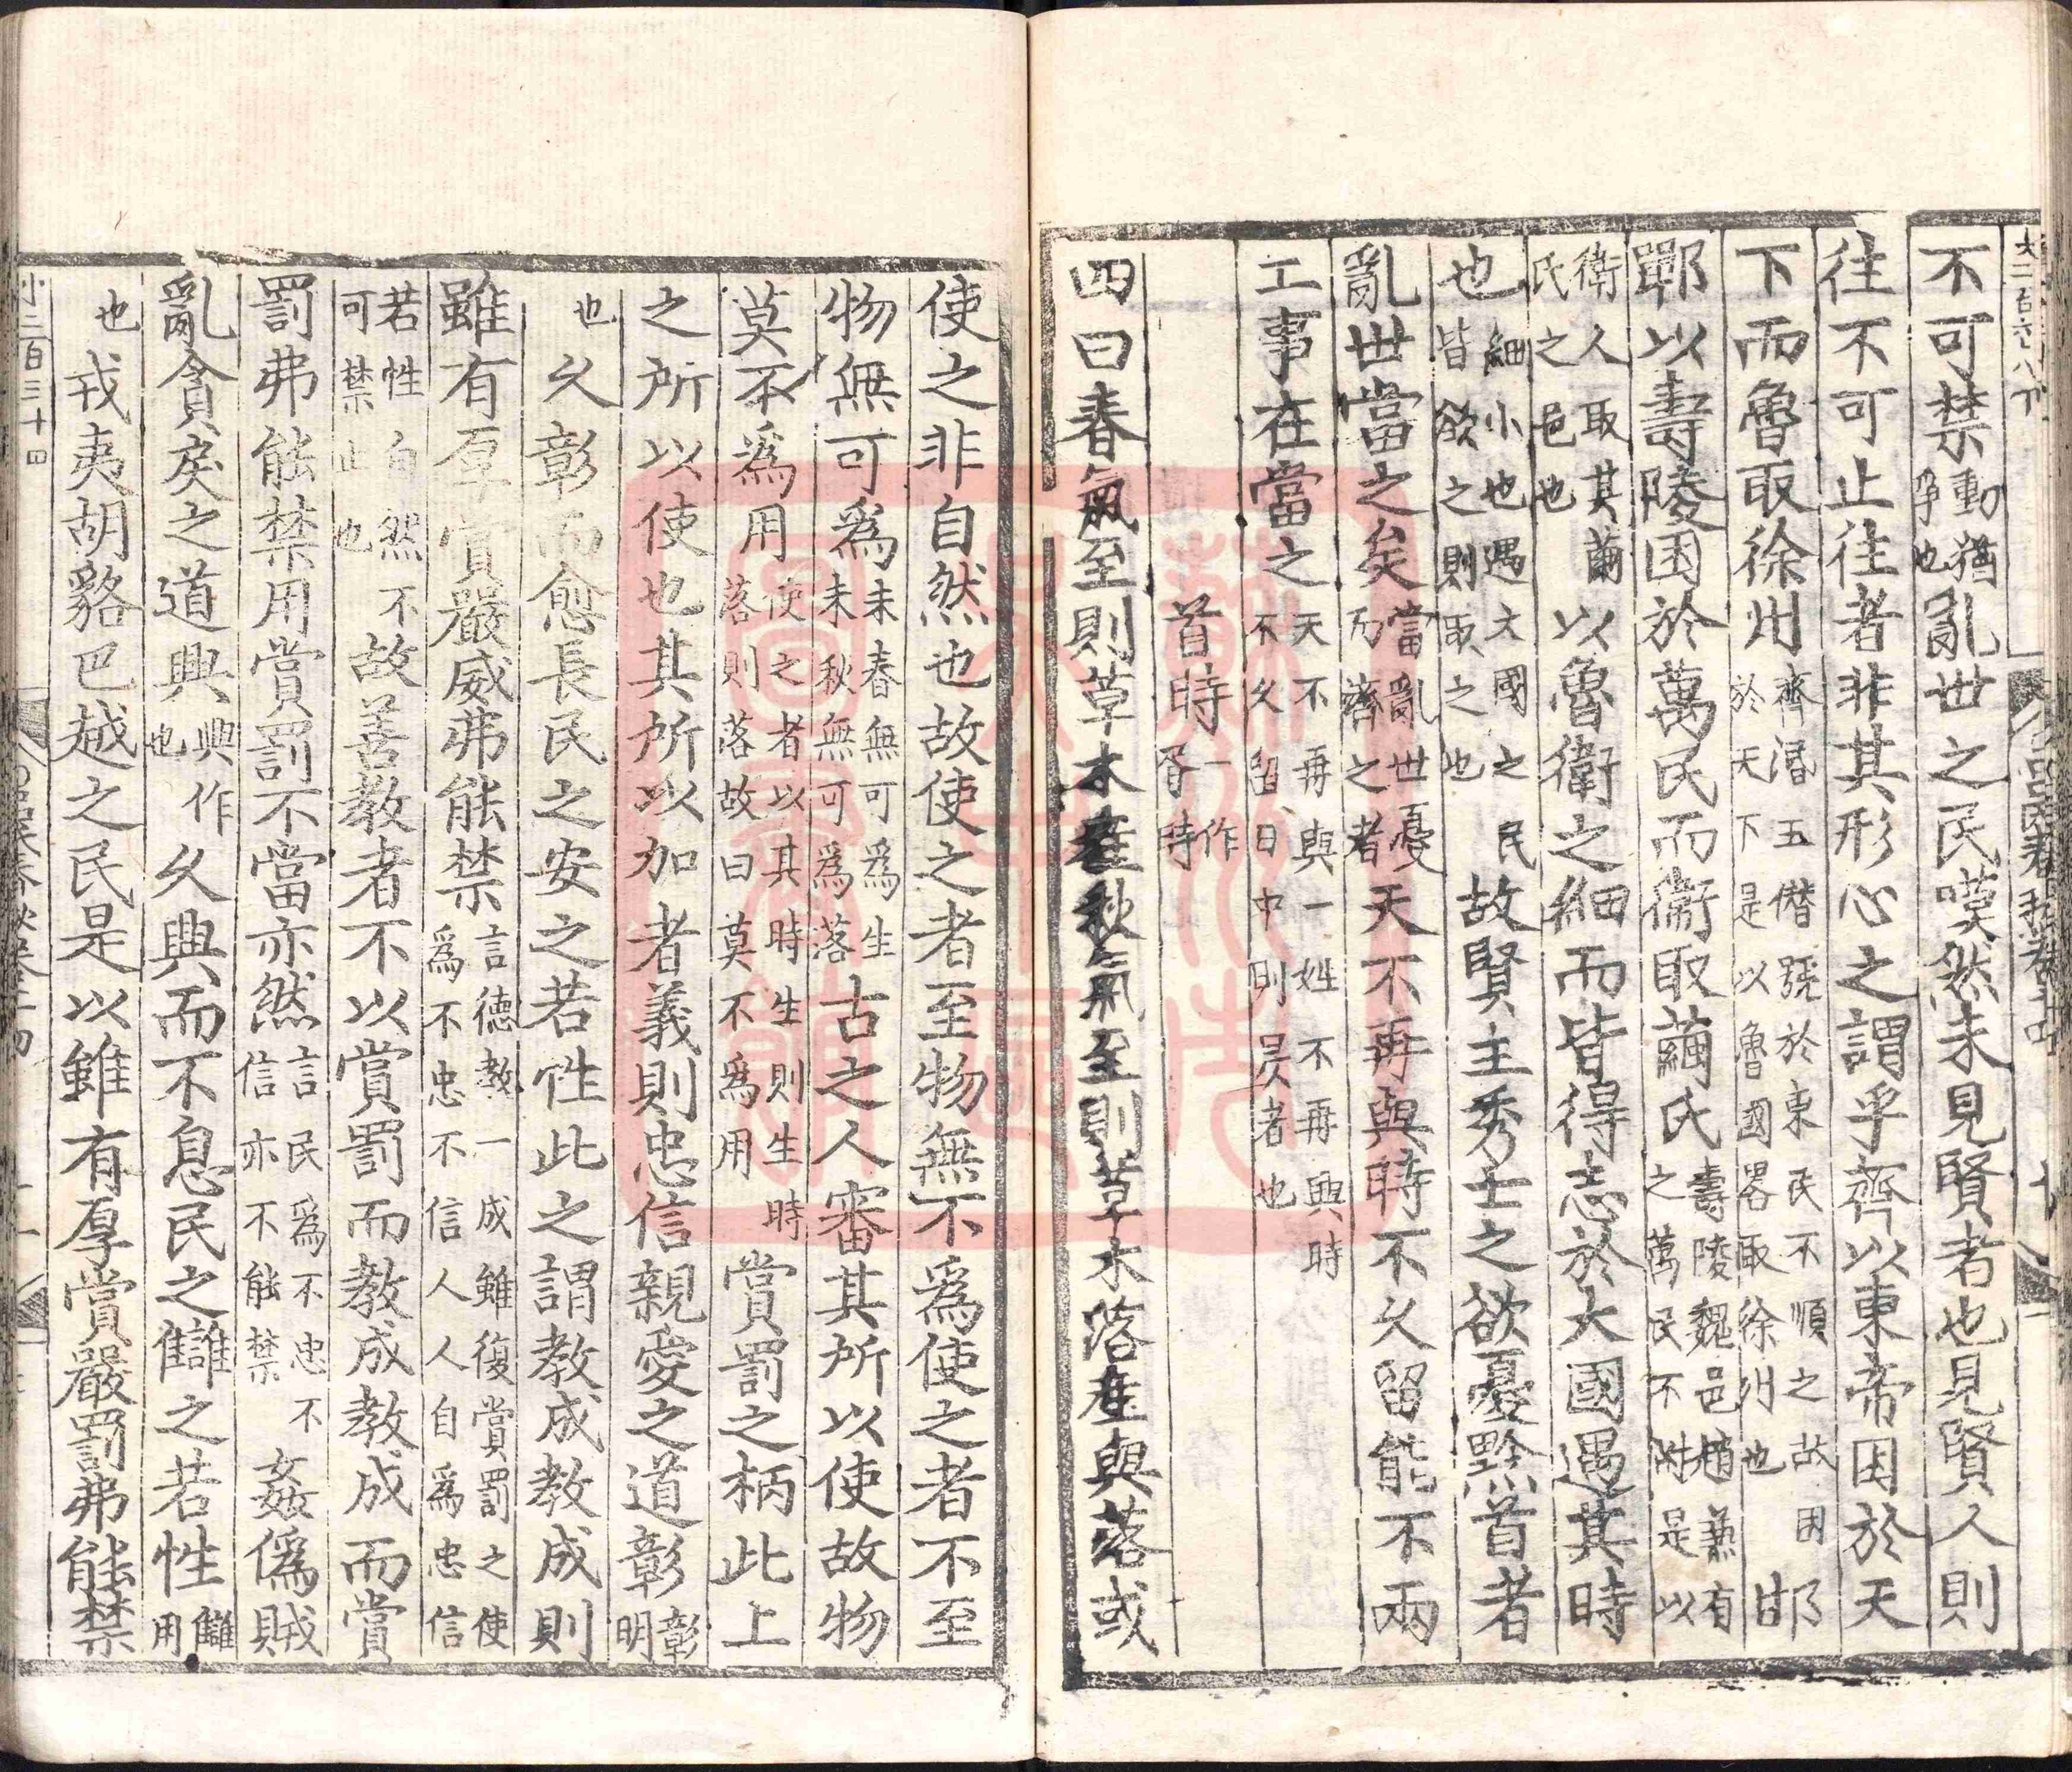 大二百六八丁
不可禁動猶爭也亂世之民嘆然未見賢者也見賢人則
往不可止往者非其形心之謂乎齊以東帝困於天
下而魯取徐州齊湣五僭號於東民不順之故困於天下是以魯國畧取徐州也邯
鄲以壽陵困於萬民而衛取繭氏壽陵魏邑趙兼有之萬民不附是以
衛人取其繭氏之邑也以魯衛之細而皆得志於大國遇其時
也細小也遇大國之民皆欲之則取之也故賢主秀士之欲憂黔首者
亂世當之矣當亂世憂而濟之者天不再與時不久留能不兩
工事在當之天不再與一姓不再興時不久留日中則昃者也
首時一作胥時
四曰春氣至則草木產秋氣至則草木落產與落或
使之非自然也故使之者至物無不為使之者不至
物無可為未春無可為生未秋無可為落古之人審其所以使故物
莫不為用使之者以其時生則生時落則落故曰莫不為用賞罰之柄此上
之所以使也其所以加者義則忠信親愛之道彰彰明
也久彰而愈長民之安之若性此之謂教成教成則
雖有厚賞嚴威弗能禁言德教一成雖復賞罰之使為不忠不信人人自為忠信
若性自然不可禁止也故善教者不以賞罰而教成教成而賞
罰弗能禁用賞罰不當亦然言民為不忠不信亦不能禁姦偽賊
亂貪戾之道興興作也久興而不息民之讎之若性讎用
也戎夷胡貉巴越之民是以雖有厚賞嚴罰弗能禁
小二百三十四